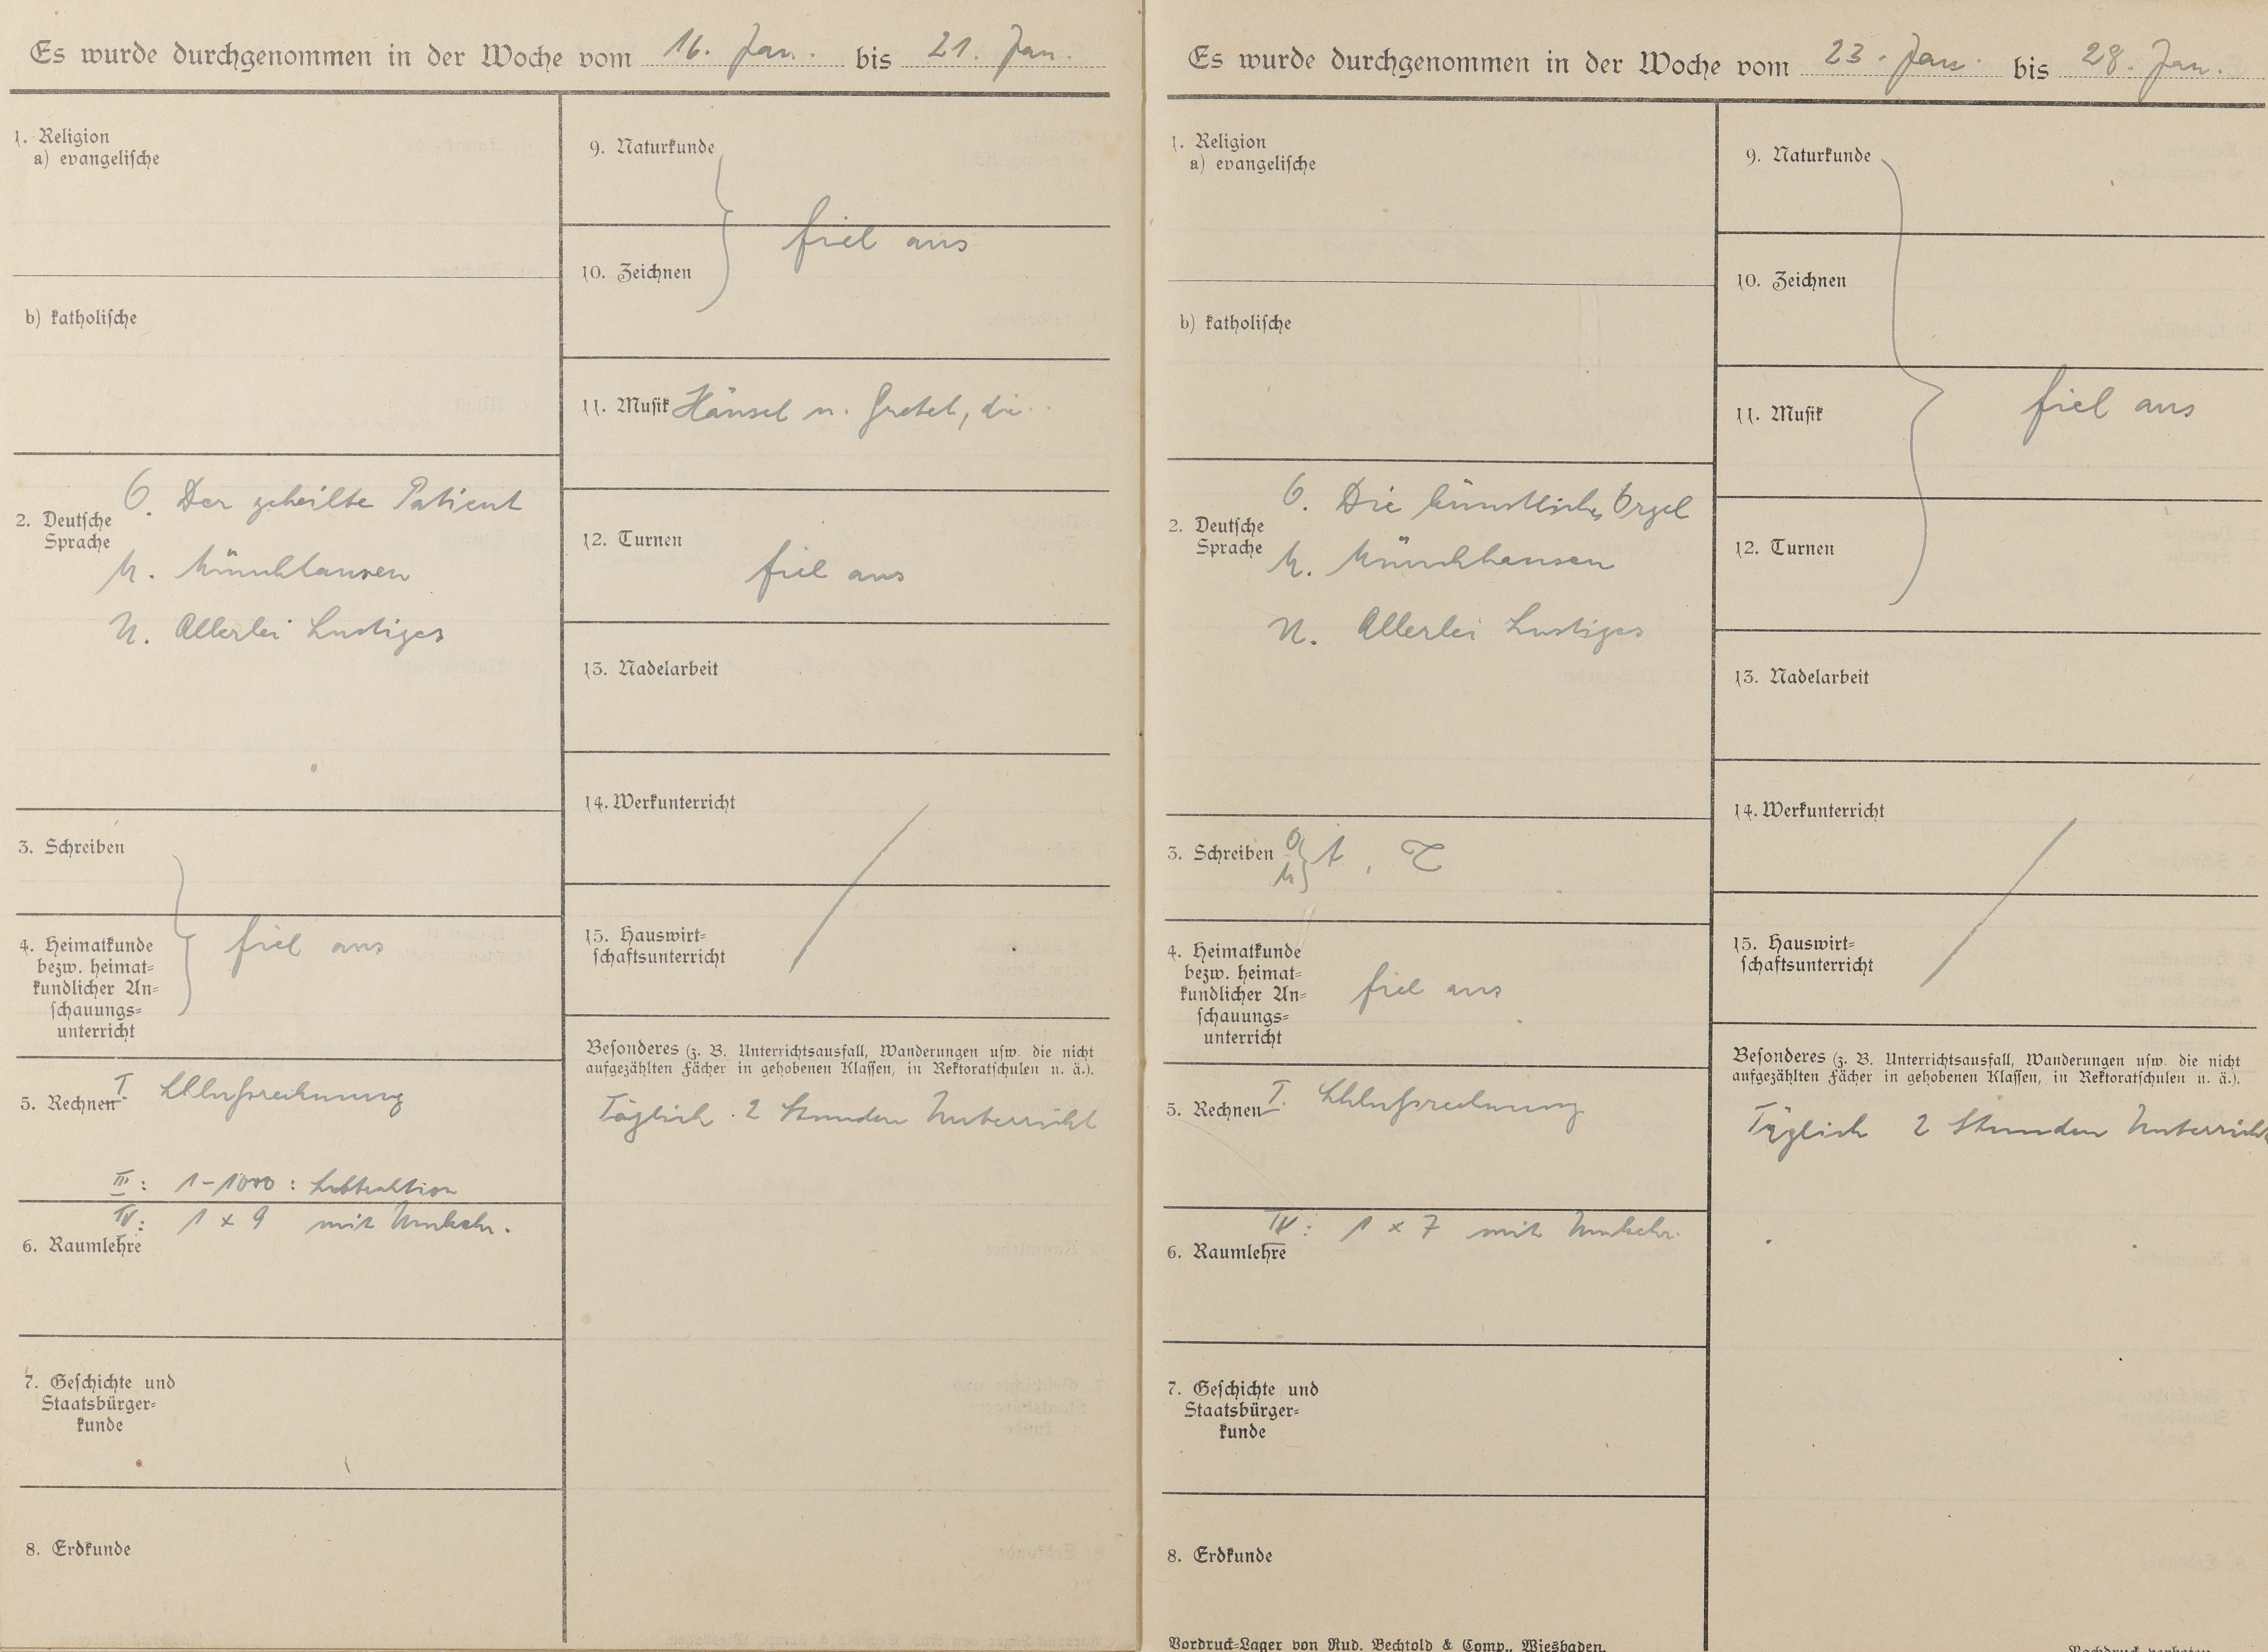 Es wurde durchgenommen in der Woche vom 16. Jan. bis 21. Jan.
1. Religion
a) evangelische
b) katholische
2. Deutsche
Sprache
O. Der geheilte Patient
M. Münchhausen
U. Allerlei Lustiges
3. Schreiben
4. Heimatkunde
bezw. heimat=
kundlicher An=
schauungs=
unterricht
fiel aus
5. Rechnen
I. Schlußrechnung
III: 1-1000: Subtraktion
IV: 1 x 9 mit Umkehr.
6. Raumlehre
7. Geschichte und
Staatsbürger=
kunde
8. Erdkunde
9. Naturkunde
fiel aus
10. Zeichnen
11. Musik Hänsel u. Gretel, die
12. Turnen
fiel aus
13. Nadelarbeit
14. Werkunterricht
15. Hauswirt=
schaftsunterricht
Besonderes (z. B. Unterrichtsausfall, Wanderungen usw. die nicht
aufgezählten Fächer in gehobenen Klassen, in Rektoratschulen u. ä.).
Täglich 2 Stunden Unterricht
Es wurde durchgenommen in der Woche vom 23. Jan. bis 28. Jan.
1. Religion
a) evangelische
b) katholische
2. Deutsche
Sprache
O. Die Orgel
M. Münchhausen
U. Allerlei Lustiges
3. Schreiben O M t, T
4. Heimatkunde
bezw. heimat=
kundlicher An=
schauungs=
unterricht
fiel aus
5. Rechnen I. Schlußrechnung
IV: 1 x 7 mit Umkehr.
6. Raumlehre
7. Geschichte und
Staatsbürger=
kunde
8. Erdkunde
Vordruck-Lager von Rud. Bechtold & Comp., Wiesbaden.
9. Naturkunde
10. Zeichnen
11. Musik
fiel aus
12. Turnen
13. Nadelarbeit
14. Werkunterricht
15. Hauswirt=
schaftsunterricht
Besonderes (z. B. Unterrichtsausfall, Wanderungen usw. die nicht
aufgezählten Fächer in gehobenen Klassen, in Rektoratschulen u. ä.).
Täglich 2 Stunden Unterricht
Nachdruck verboten